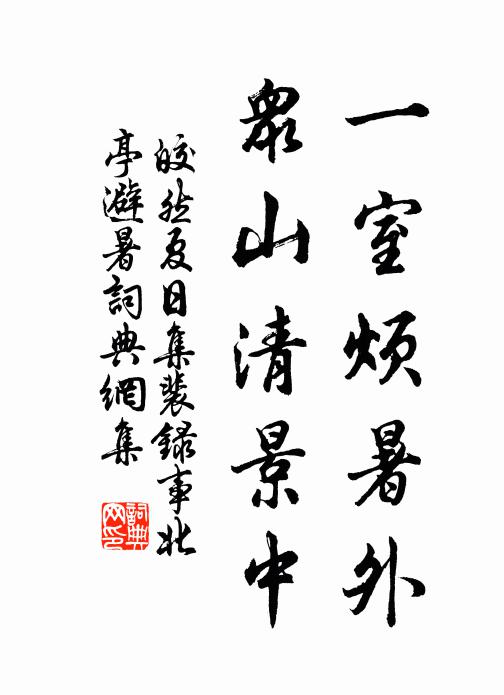 一室煩暑外
眾山清景中
皎然夏日集裴錄事北
亭避暑詞典網集
詞典
网印